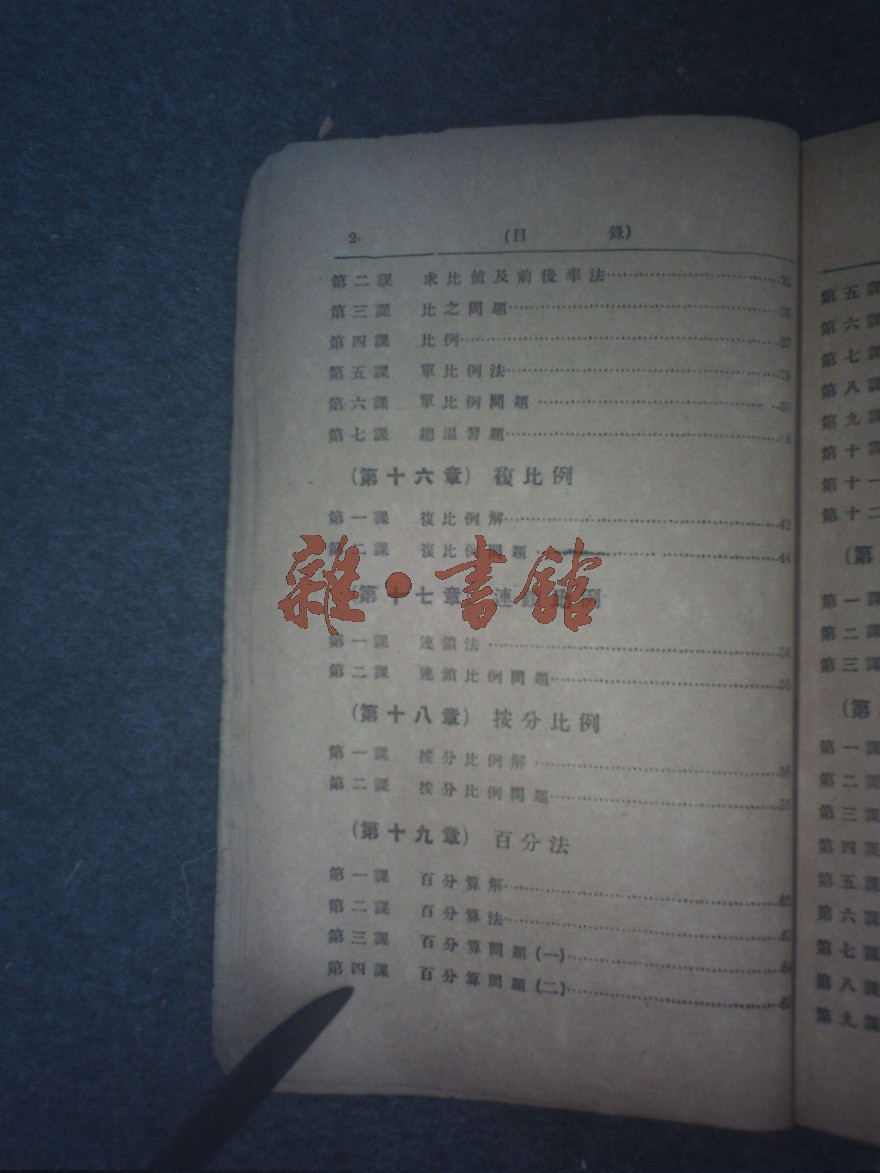 2 (目 錄)
第二課 求比值及前後率法 25
第三課 比之問題 26
第四課 比例 27
第五課 單比例法
第六課 單比例問題
第七課 總温習題
(第十六章) 複比例
第一課 複比例解 42
第二課 複比例問題 44
雜·書館
(第十七章) 連鎖比例
第一課 連鎖法
第二課 連鎖比例問題
(第十八章) 按分比例
第一課 按分比例解
第二課 按分比例問題
(第十九章) 百分法
第一課 百分算解
第二課 百分算法
第三課 百分算問題(一)
第四課 百分算問題(二)
第五課
第六課
第七課
第八課
第九課
第十課
第十一
第十二
(第
第一課
第二課
第三課
(第
第一課
第二課
第三課
第四課
第五課
第六課
第七課
第八課
第九課